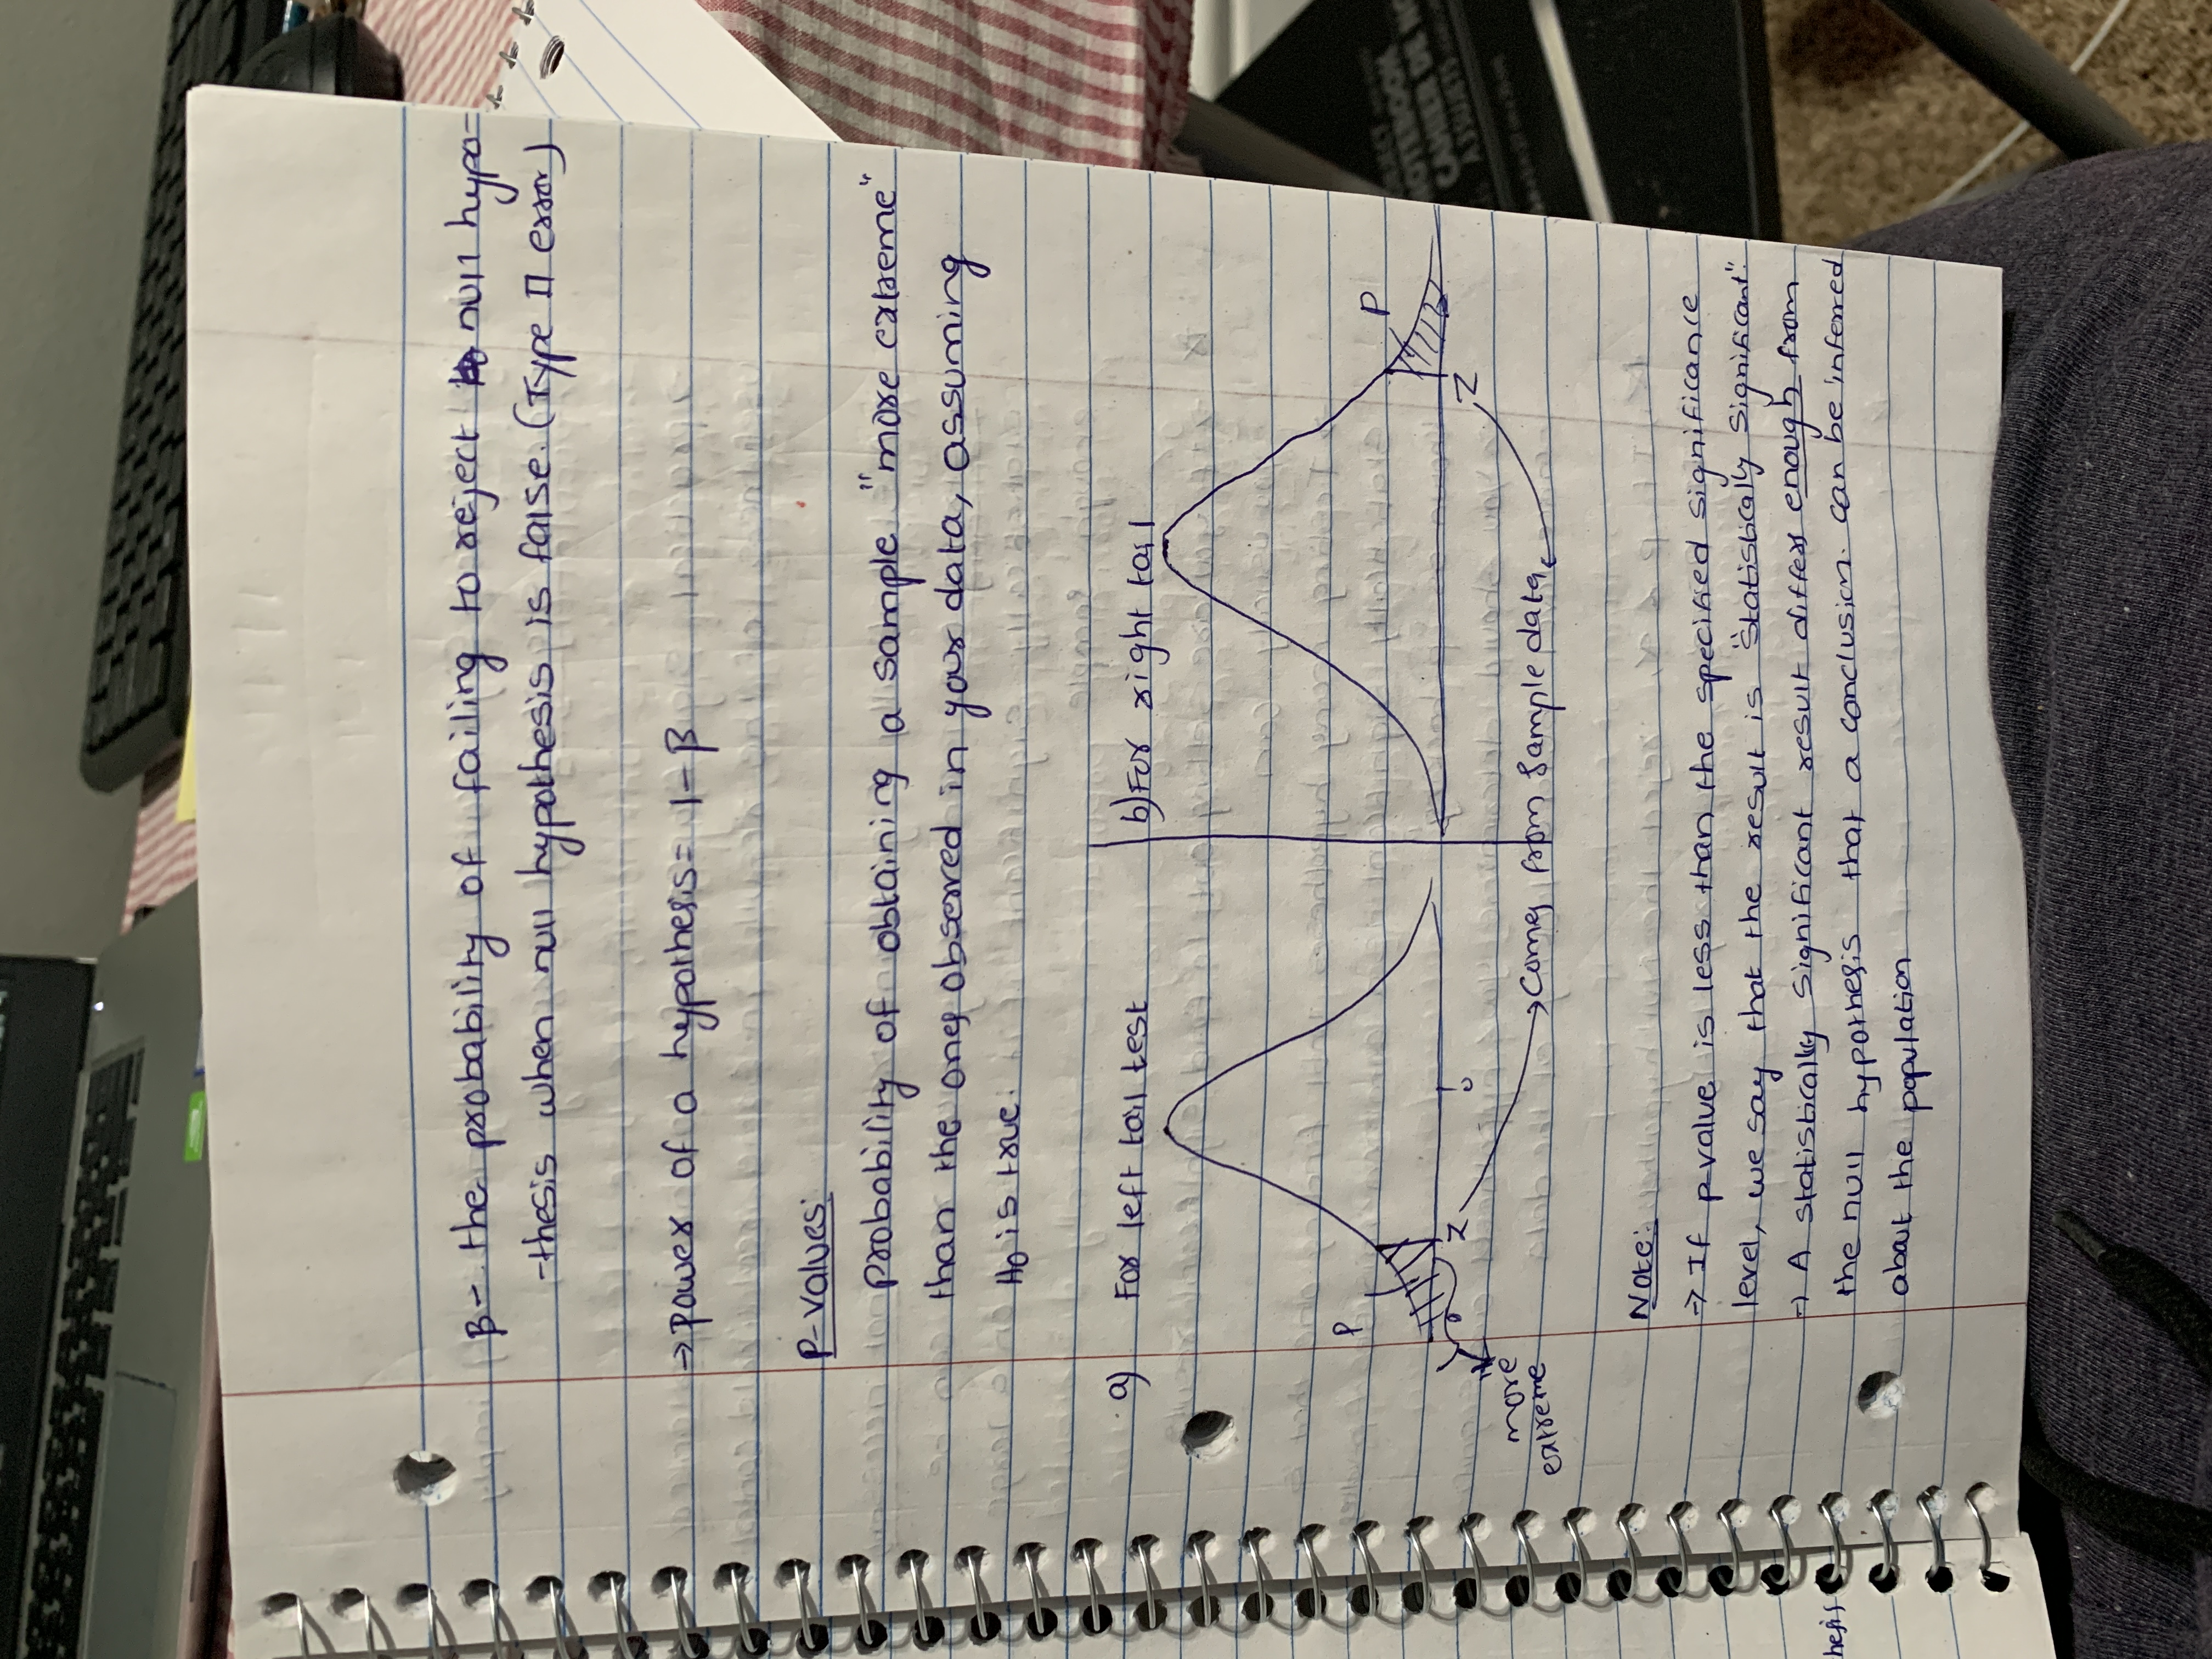 β- the probability of failing to reject null hypo-
-thesis when null hypothesis is false. (Type II error)
→ power of a hypothesis = 1-β
P-values:
probability of obtaining a sample "more extreme"
than the ones observed in your data, assuming
H0 is true.
a) For left tail test
b) For right tail
P
P
Z
0
Z
more
extreme
→ Comes from sample data
Note:
→ If p-value is less than the specified significance
level, we say that the result is "Statistically Significant".
→ A statistically significant result differs enough from
the null hypothesis that a conclusion. can be inferred
about the population
hesis
NOTEBOOK
CAHIER DE NO